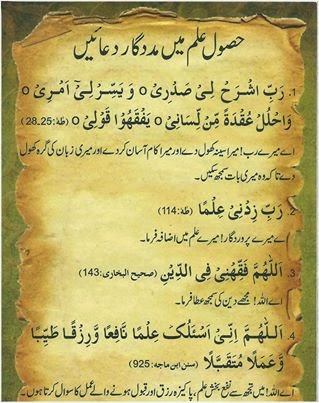 حصول علم میں مددگار دعائیں
1. رَبِّ اشْرَحْ لِیْ صَدْرِیْ ○ وَ یَسِّرْ لِیْٓ اَمْرِیْ ○
وَاحْلُلْ عُقْدَةً مِّنْ لِّسَانِیْ ○ یَفْقَهُوْا قَوْلِیْ ○ (طٰهٰ:28.25)
اے میرے رب! میرا سینہ کھول دے اور میرا کام آسان کر دے اور میری زبان کی گرہ کھول
دے تا کہ وہ میری بات سمجھ سکیں۔
2. رَبِّ زِدْنِیْ عِلْمًا (طٰهٰ:114)
اے میرے پروردگار! میرے علم میں اضافہ فرما۔
3. اَللّٰهُمَّ فَقِّهْنِیْ فِی الدِّیْنِ (صحیح البخاری:143)
اے اللہ! مجھے دین کی سمجھ عطا فرما۔
4. اَللّٰهُمَّ اِنِّیْ اَسْئَلُکَ عِلْمًا نَّافِعًا وَّرِزْقًا طَیِّبًا
وَّعَمَلًا مُّتَقَبَّلًا (سنن ابن ماجه:925)
اے اللہ! میں تجھ سے نفع بخش علم، پاکیزہ رزق اور قبول ہونے والے عمل کا سوال کرتا ہوں۔